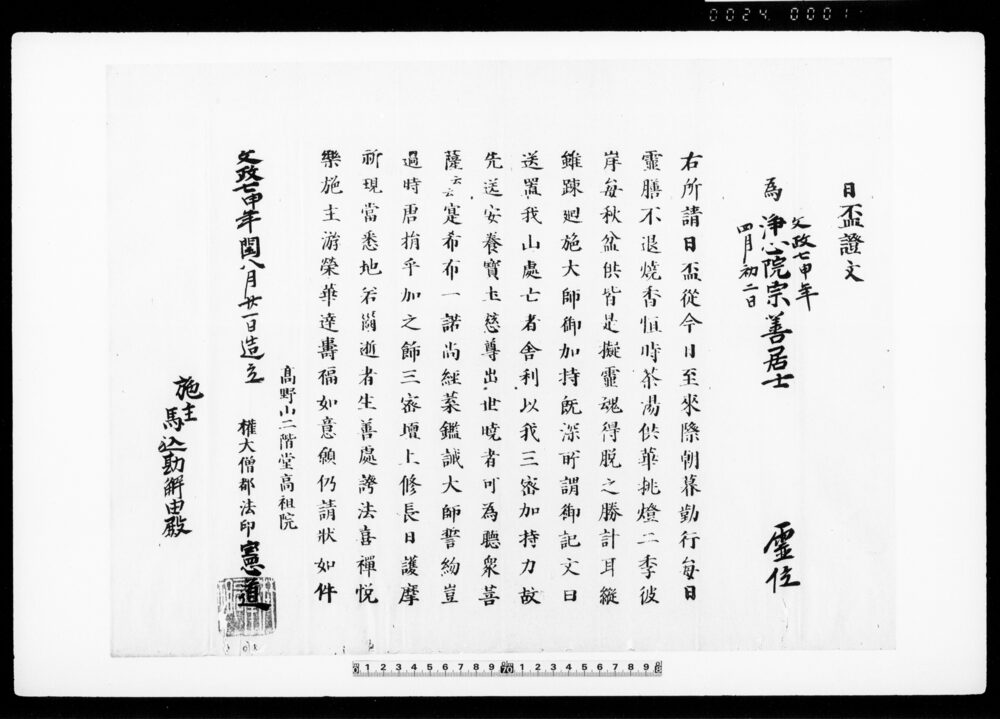 0024 0001
日盃證文
文政七甲年
四月初二日
為 浄心院宗善居士 霊位
右所請日盃從今日至來際朝暮勤行每日
靈膳不退燒香恒時茶湯供華挑燈二季彼
岸每秋盆供皆是擬靈魂得脱之勝計耳縱
雖踈廻施大師御加持既深所謂御記文曰
送置我山處亡者舍利以我三密加持力故
先送安養寶土慈尊出世曉者可為聽衆菩
薩云云寔希布一諾尚經菜鑑誠大師誓約豈
過時唐捐乎加之飾三密壇上修長日護摩
祈現當悉地若爾逝者生善處誇法喜禪悦
樂施主游榮華達壽福如意願仍請狀如件
高野山二階堂高祖院
文政七甲年閏八月廿一日造立 權大僧都法印憲道
施主
馬込勘解由殿
1 2 3 4 5 6 7 8 9 70 1 2 3 4 5 6 7 8 9